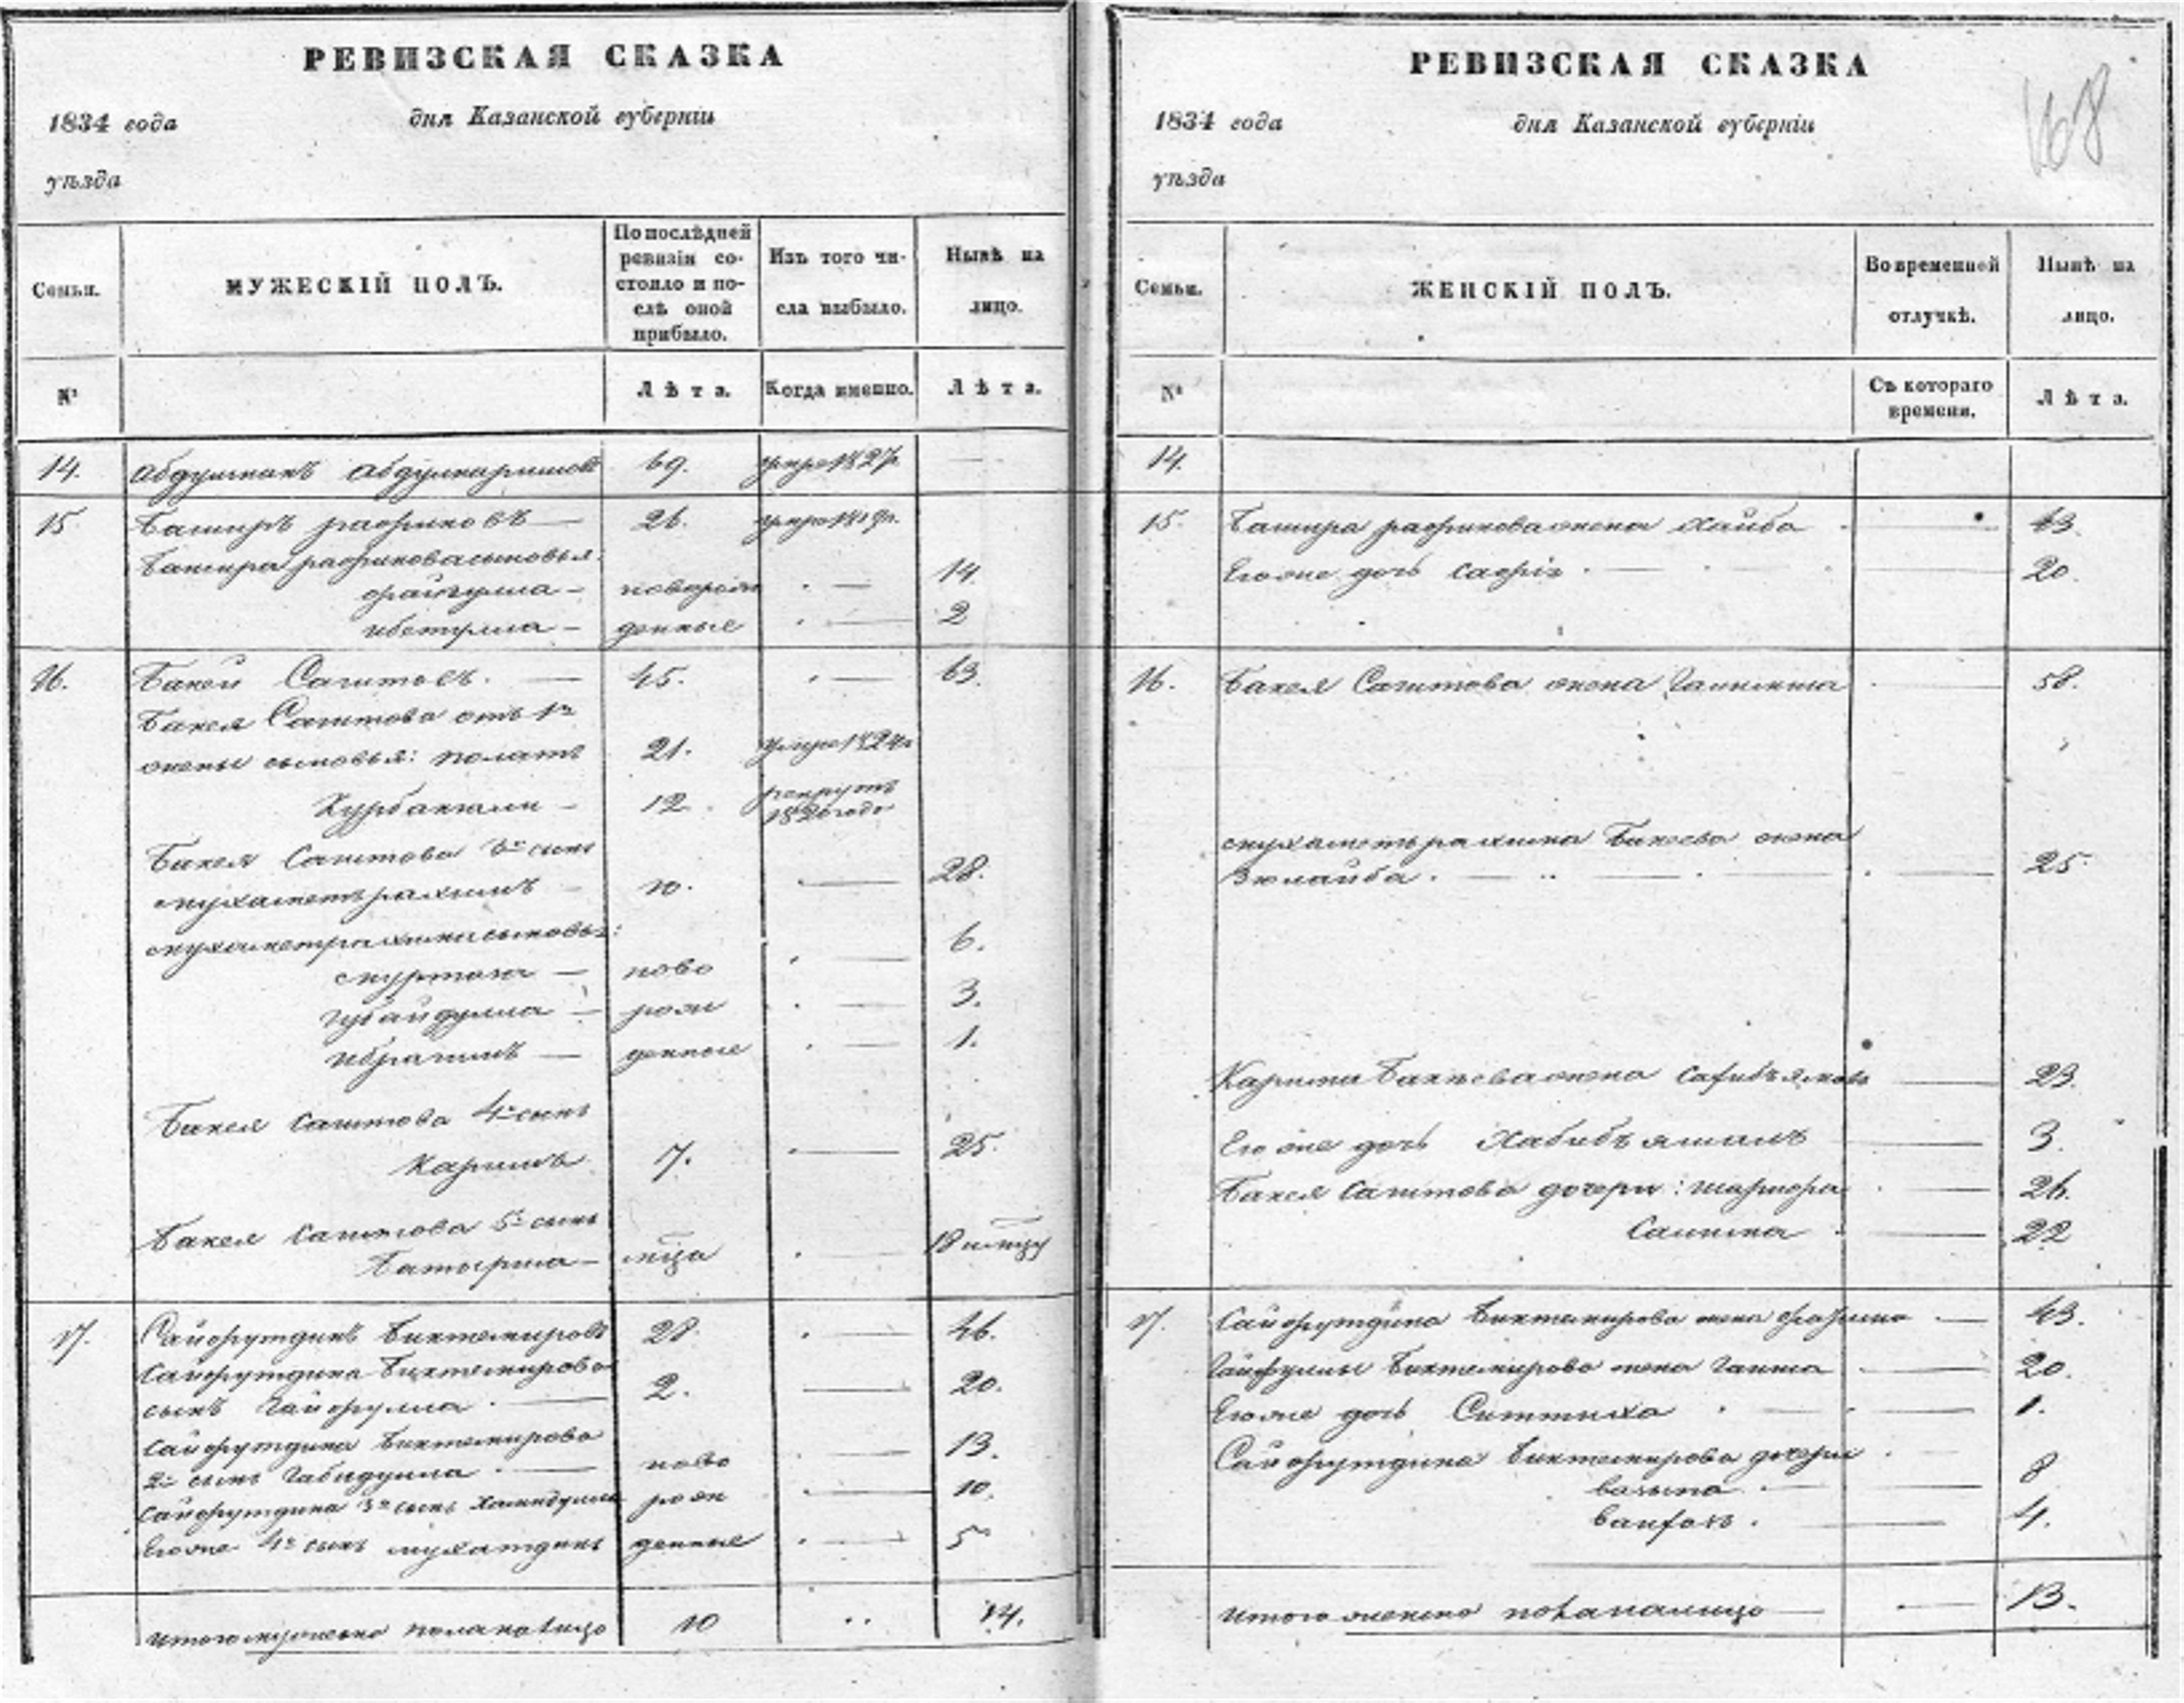 РЕВИЗСКАЯ СКАЗКА
1834 года дня Казанской губерніи
уѣзда
Семьи. МУЖЕСКІЙ ПОЛЪ. По послѣдней ревизіи состояло и послѣ оной прибыло. Изъ того числа выбыло. Нынѣ на лицо.
№ Лѣта. Когда именно. Лѣта.
14. абдулманъ абдулкаримовъ 69. умре 1827
15 Баширъ рафиковъ — 26. умре 1819г.
Башира рафикова сыновья:
файзулла — новорож — 14.
ибетулла — денные — 2
16. Бакей Сагитовъ. — 45. — 63.
Бакея Сагитова отъ 1й
жены сыновья: полатъ 21. умре 1824г
Курбангали — 12. рекрутъ 1826 годе
Бакея Сагитова 3й сынъ
мухаметърахимъ — 10. — 28.
мухаметрахима сыновья: 6.
муртаза — ново —
губайдулла — рож — 3.
ибрагимъ — денные — 1.
Бакея Сагитова 4й сынъ
Каримъ 7. — 25.
Бакея Сагитова 5й сынъ
— мца — 18
17. Сайфутдинъ Биктемировъ 28. — 46.
Сайфутдина Биктемирова
сынъ Гайфулла. — 2. — 20.
Сайфутдина Биктемирова
2й сынъ Габидулла. — ново — 13.
Сайфутдина 3й сынъ Хамидулла рож — 10.
Его же 4й сынъ мухатдинъ денные — 5
итого мужеска пола на лицо 10 14.
РЕВИЗСКАЯ СКАЗКА
168
1834 года дня Казанской губерніи
уѣзда
Семьи. ЖЕНСКІЙ ПОЛЪ. Во временной отлучкѣ. Нынѣ на лицо.
№ Съ котораго времени. Лѣта.
14.
15. Башира рафикова жена Хайба — 43.
Его же дочь Сафія — 20.
16. Бакея Сагитова жена — 58.
мухаметърахима Бакеева жена
Зюлайба. — 25
Карима Бакеева жена — 23.
Его же дочь Хабибъямалъ — 3.
Бакея Сагитова дочери: — 26.
Салима — 22
17. Сайфутдина Биктемирова жена — 43.
Гайфуллы Биктемирова жена — 20.
Его же дочь Ситтыха — 1.
Сайфутдина Биктемирова дочери
— 8
— 4.
итого женска пола на лицо — 13.